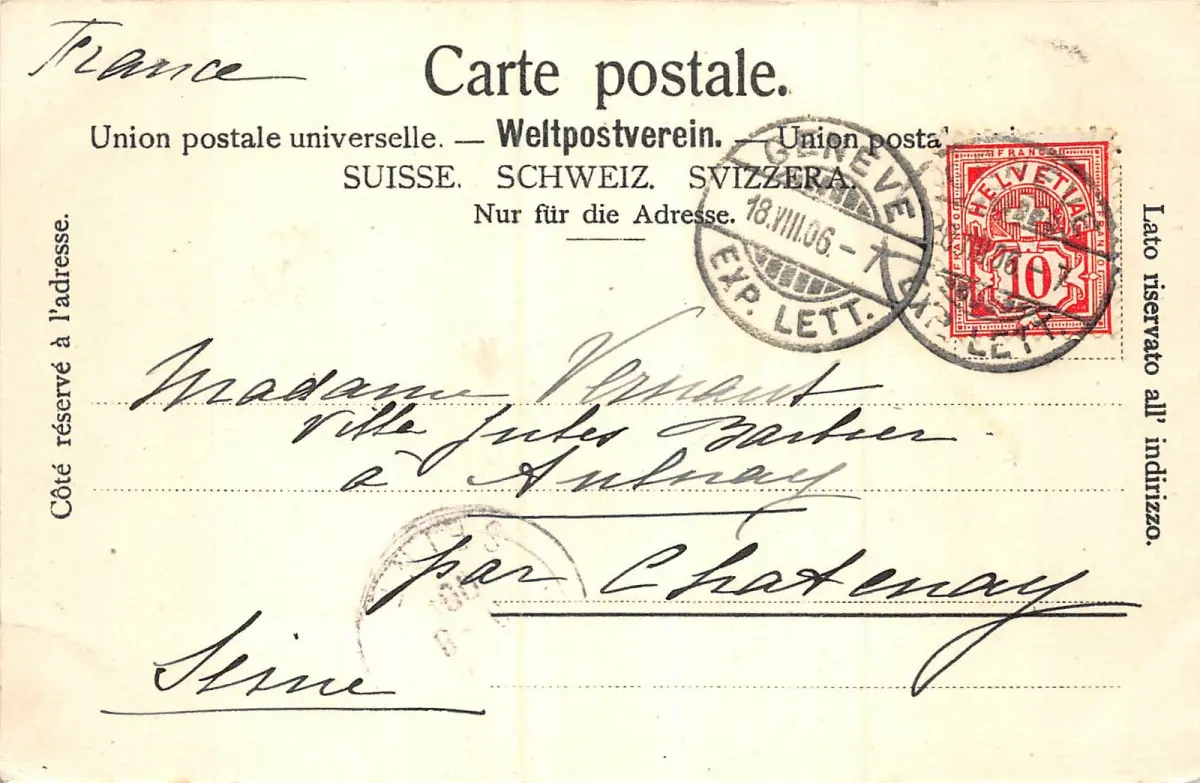 France
Carte postale.
Union postale universelle. — Weltpostverein. — Union posta
SUISSE. SCHWEIZ. SVIZZERA.
Nur für die Adresse.
GENÈVE
18.VIII.06.-7
EXP. LETT.
FRANCO
HELVETIA
FRANCO
FRANCO
10
VIII.06.-7
EXP. LETT.
Côté réservé à l'adresse.
Lato riservato all' indirizzo.
Madame Vernaut
Villa Jules Barbier
à Aulnay
par Chatenay
Seine